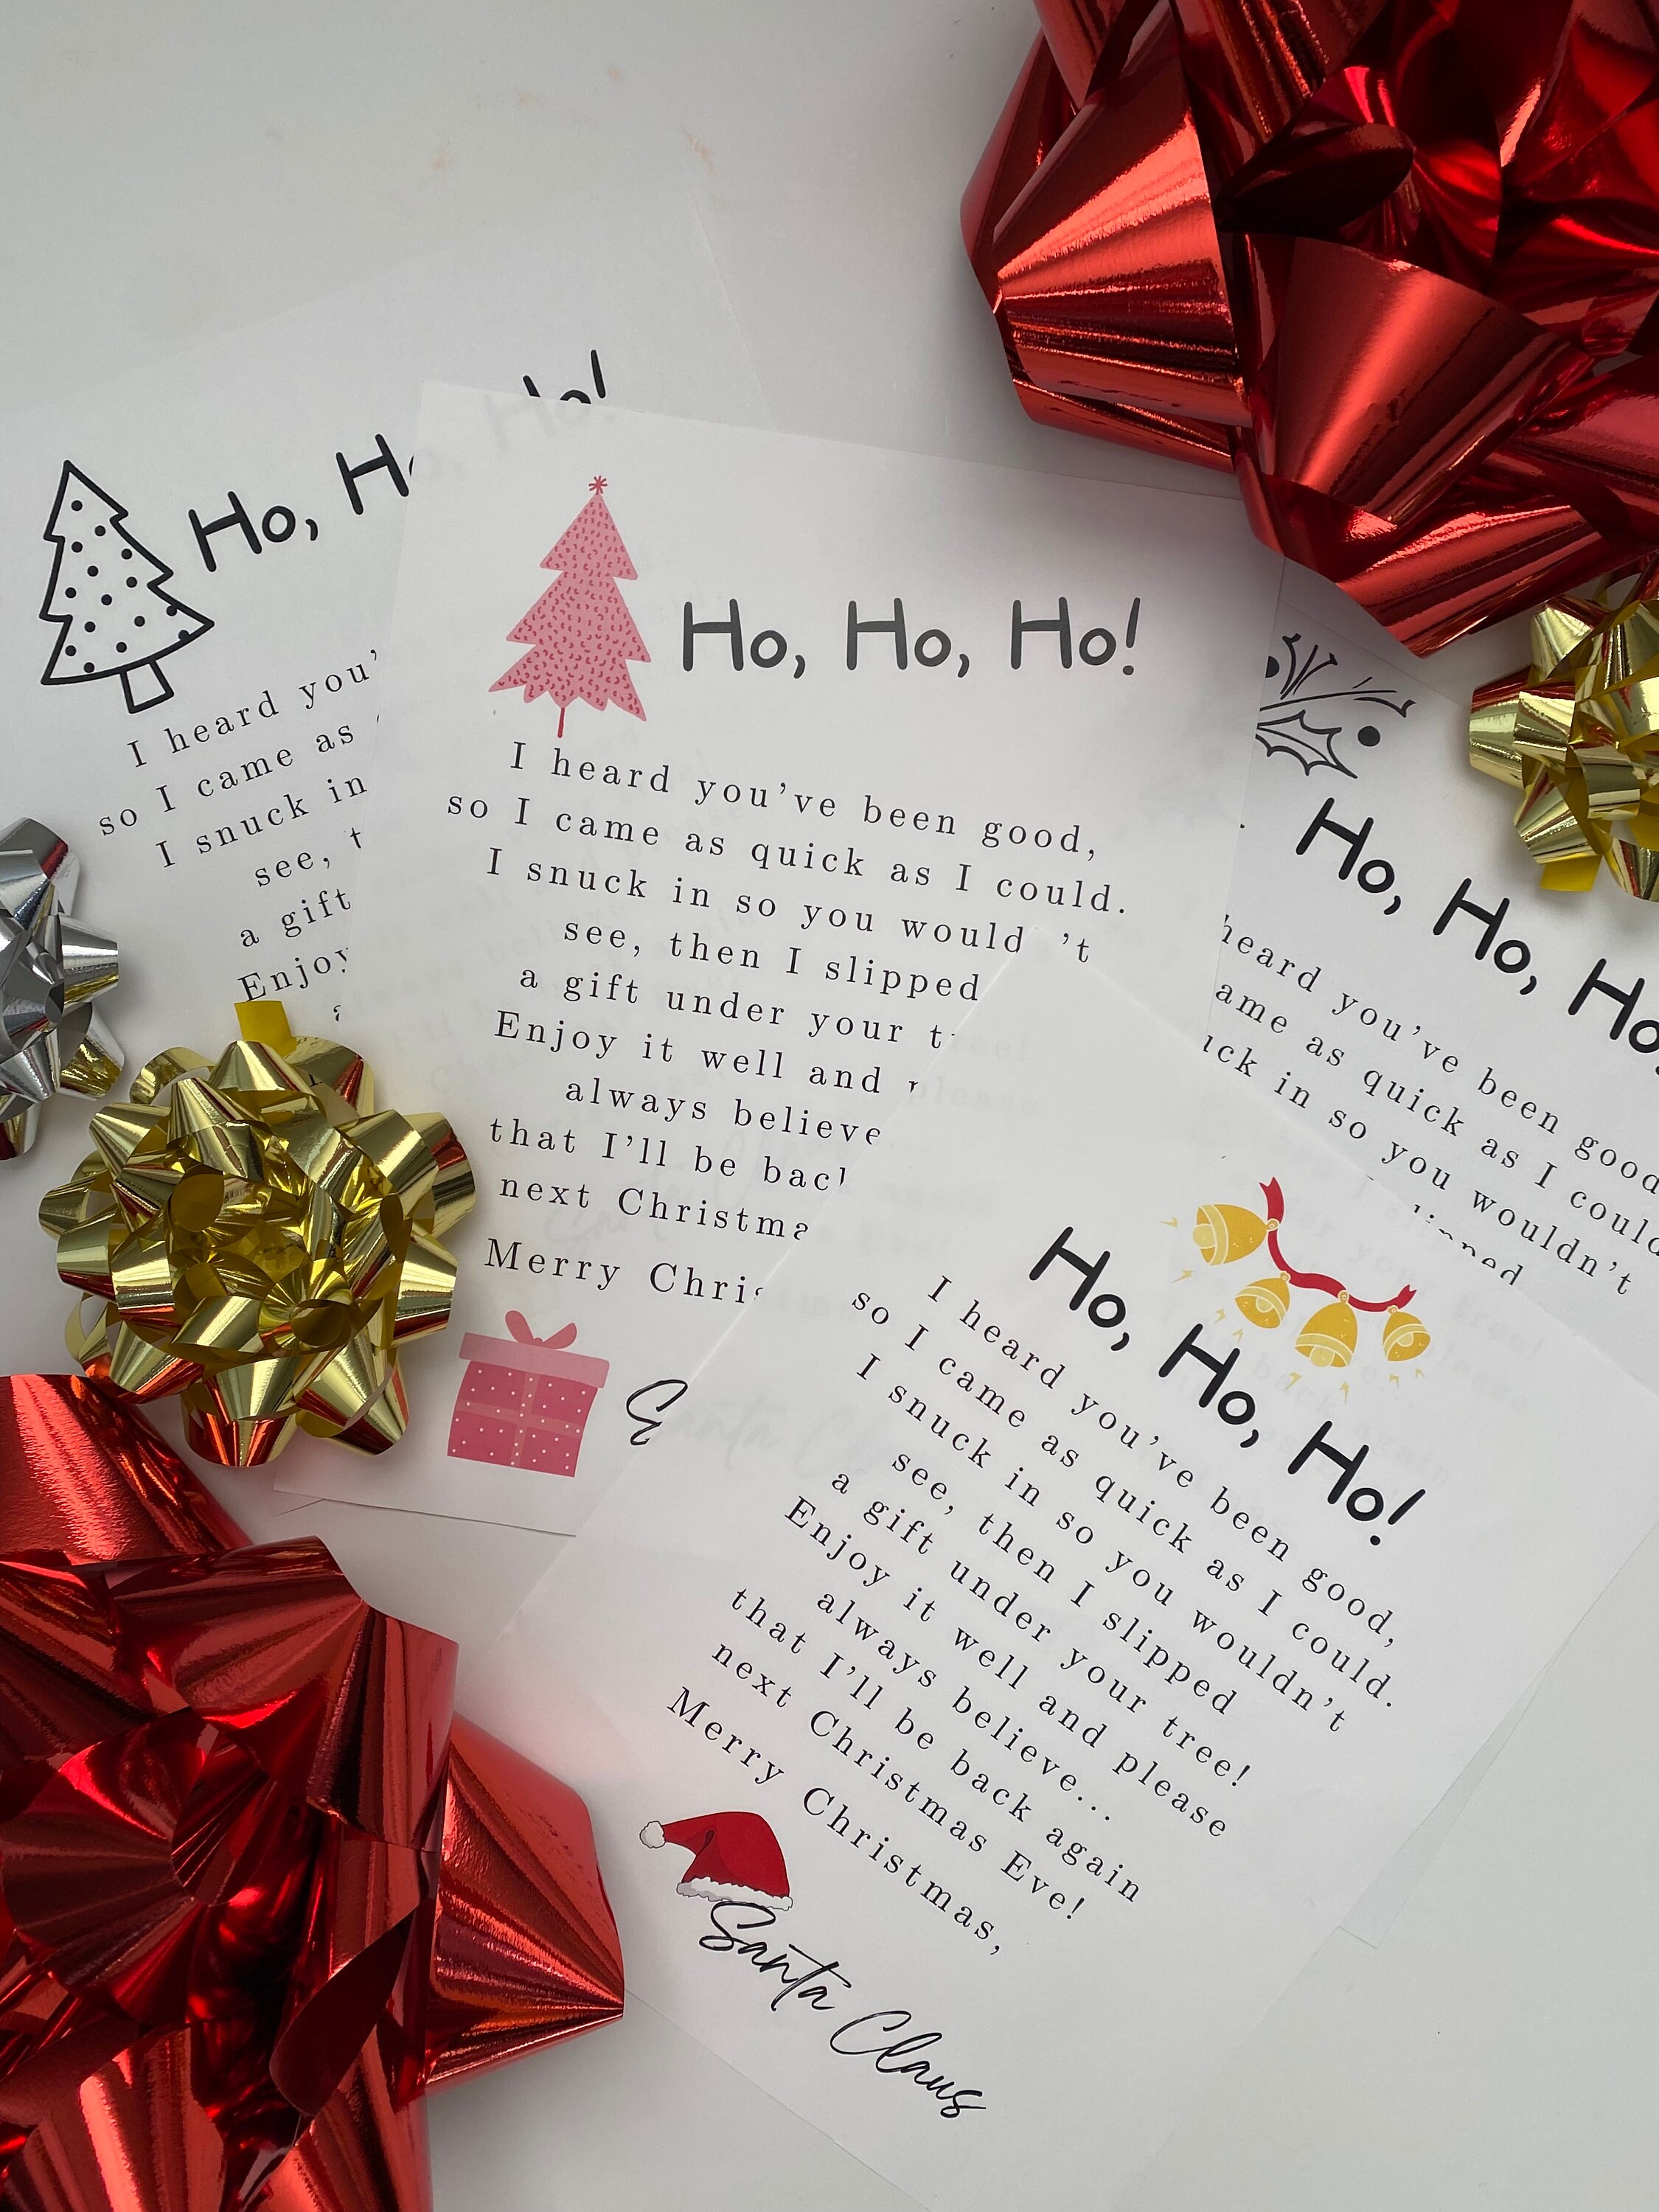 Ho, Ho, Ho!
I heard you'
so I came as
I snuck in
see,
a gift
Enjoy
Ho, Ho, Ho!
I heard you've been good,
so I came as quick as I could.
I snuck in so you would 't
see, then I slipped
a gift under your
Enjoy it well and please
always believe
that I'll be back
next Christma
Merry Chris
Santa
Ho, Ho, Ho
heard you've been good
ame as quick as I could
uck in so you wouldn't
slipped
Ho, Ho, Ho!
I heard you've been good,
so I came as quick as I could.
I snuck in so you wouldn't
see, then I slipped
a gift under your tree!
Enjoy it well and please
always believe...
that I'll be back again
next Christmas Eve!
Merry Christmas,
Santa Claus